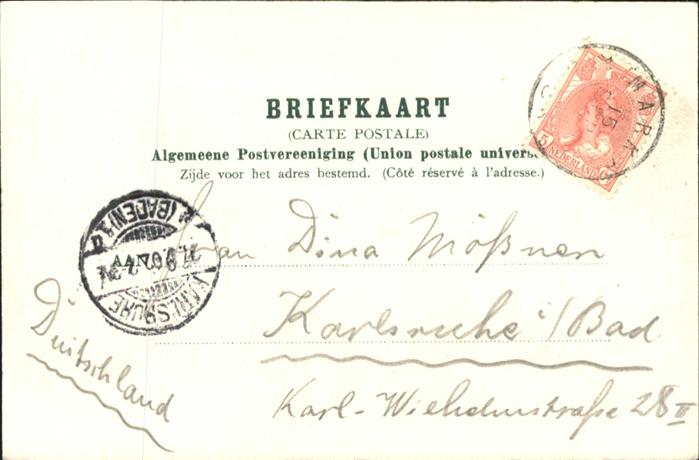 BRIEFKAART
(CARTE POSTALE)
Algemeene Postvereeniging (Union postale univers
Zijde voor het adres bestemd. (Côté réservé à l'adresse.)
NEDERLAND
MARK
KARLSRUHE
(BADEN)
Frau Dina Mößner
Karlsruhe i/Bad
Karl-Wilhelmstraße 28 II
Duitschland